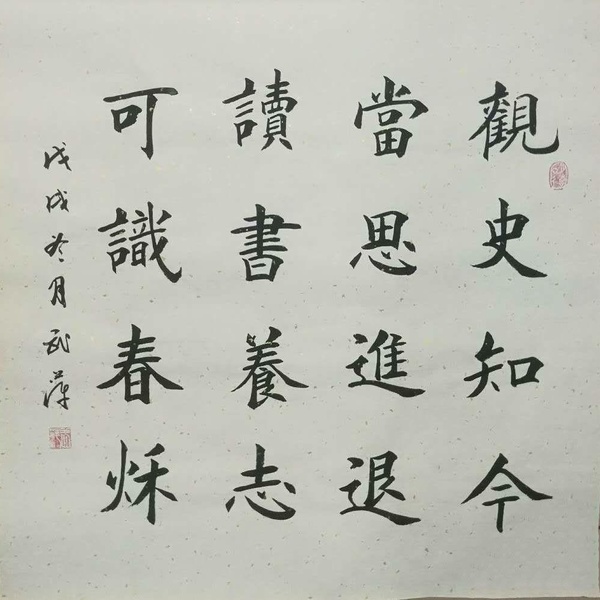 觀史知今
當思進退
讀書養志
可識春秌
戊戌冬月武萍